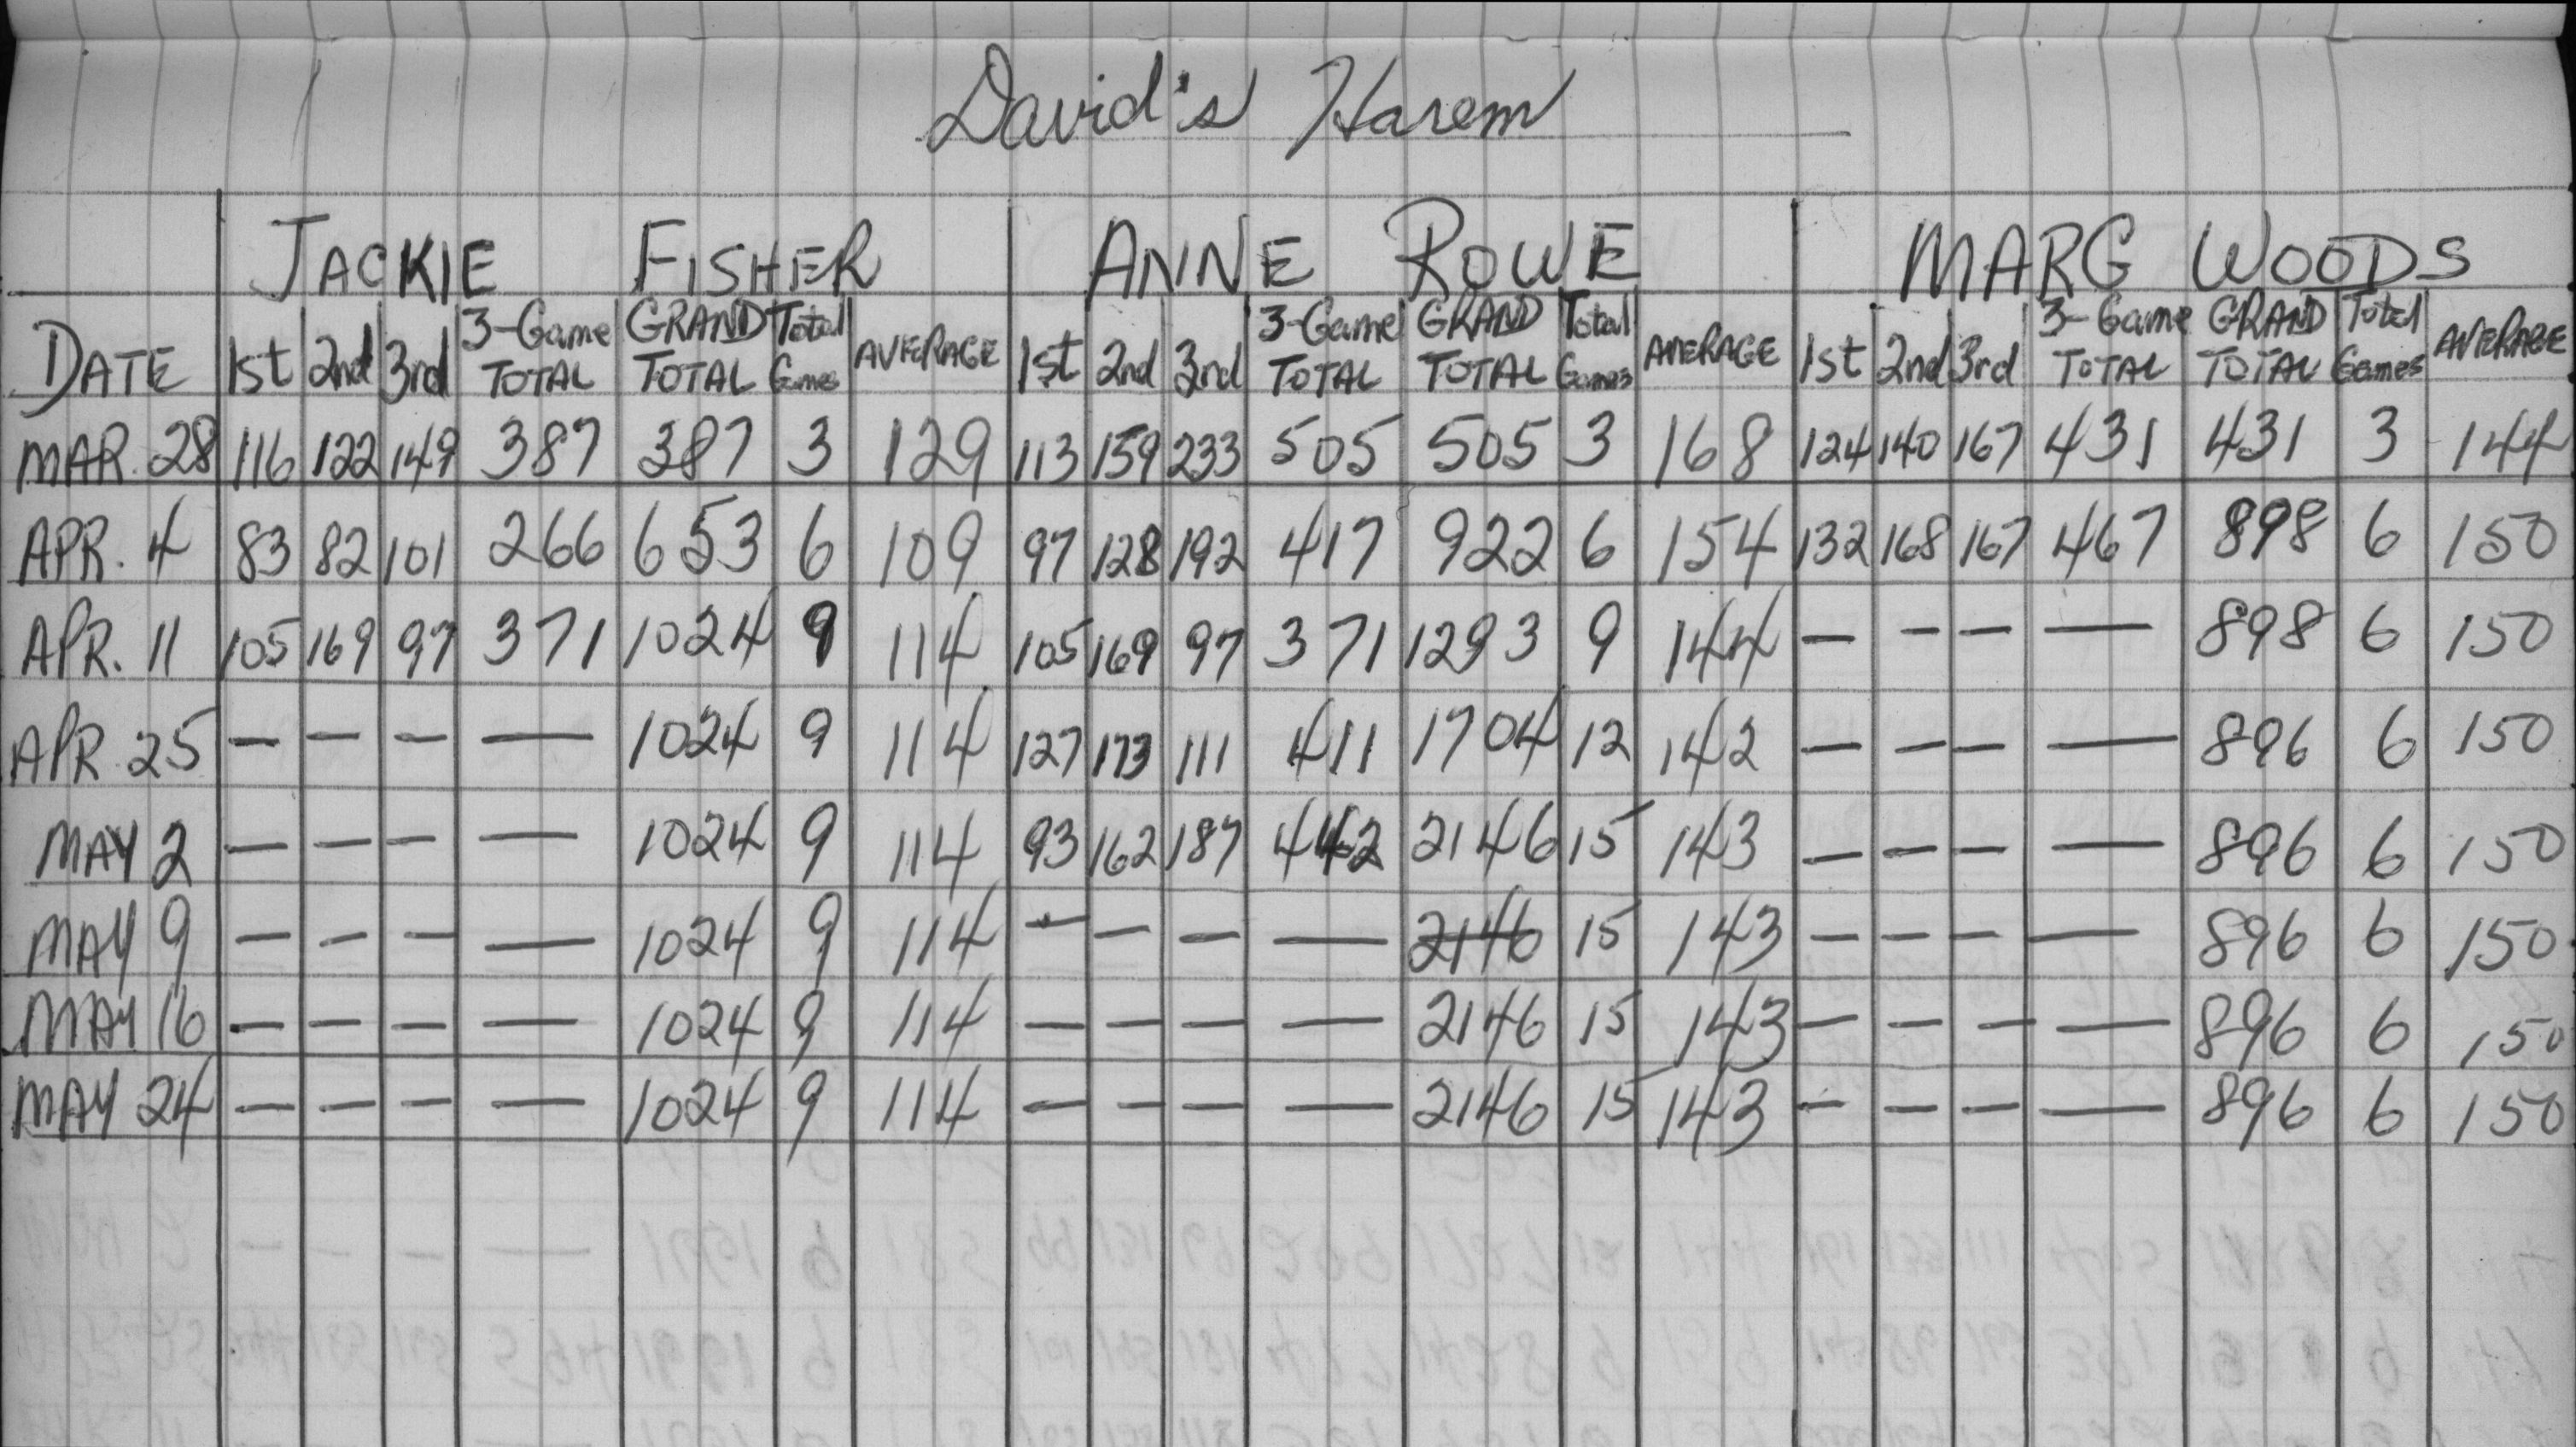 David's Harem
JACKIE FISHER ANNE ROWE MARG WOODS
DATE 1st 2nd 3rd 3-Game TOTAL GRAND TOTAL Total Games AVERAGE 1st 2nd 3rd 3-Game TOTAL GRAND TOTAL Total Games AVERAGE 1st 2nd 3rd 3-Game TOTAL GRAND TOTAL Total Games AVERAGE
MAR. 28 116 122 149 387 387 3 129 113 159 233 505 505 3 168 124 140 167 431 431 3 144
APR. 4 83 82 101 266 653 6 109 97 128 192 417 922 6 154 132 168 167 467 898 6 150
APR. 11 105 169 97 371 1024 9 114 105 169 97 371 1293 9 144 — — — — 898 6 150
APR. 25 — — — — 1024 9 114 127 173 111 411 1704 12 142 — — — — 896 6 150
MAY 2 — — — — 1024 9 114 93 162 187 442 2146 15 143 — — — — 896 6 150
MAY 9 — — — — 1024 9 114 — — — — 2146 15 143 — — — — 896 6 150
MAY 16 — — — — 1024 9 114 — — — — 2146 15 143 — — — — 896 6 150
MAY 24 — — — — 1024 9 114 — — — — 2146 15 143 — — — — 896 6 150